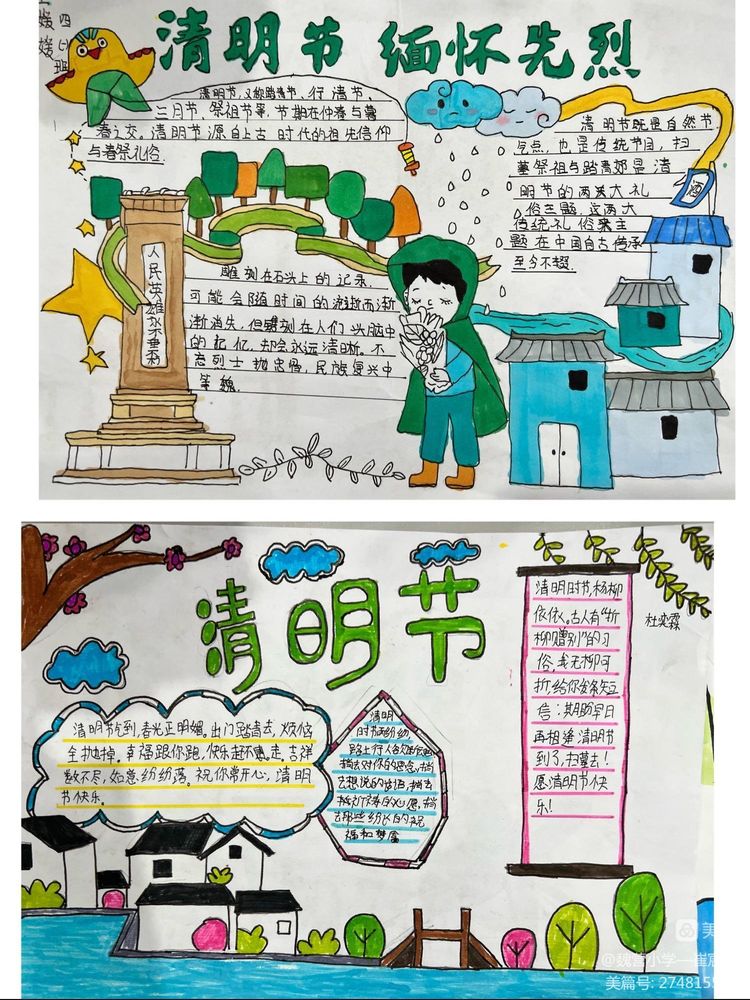 四(一)班
媛媛
清明节 缅怀先烈
清明节,又称踏青节、行清节、
三月节、祭祖节等,节期在仲春与暮
春之交。清明节源自上古时代的祖先信仰
与春祭礼俗.
清明节既是自然节
气点,也是传统节日,扫
墓祭祖与踏青郊是清
明节的两大礼
俗主题,这两大
传统礼俗来主
题在中国自古传承
至今不辍.
酒
人民英雄永垂不朽
雕刻在石头上的记录
可能会随时间的流逝而渐
渐消失,但镌刻在人们头脑中
的记忆,却会永远清晰。不
忘烈士抛忠骨,民族复兴中
华魏.
清明节
清明时节,杨柳
依依。古人有“折
柳赠别”的习
俗,我无柳可
折,给你发条短
信:期盼早日
再相逢 清明节
到了,扫墓去!
愿清明节快
乐!
杜奕霖
清明节到,春光正明媚。出门踏青去,烦恼
全抛掉。幸福跟你跑,快乐赶不走,吉祥
数不尽,如意纷纷落。祝你常开心,清明
节快乐。
清明
时节雨纷纷,
路上行人欲断魂
捎去对你的思念,捎
去想说的话语,捎去
的心愿,捎
去那些纷长的祝
福和梦寐
美
@魏营小学一崔宸
美篇号: 2748151